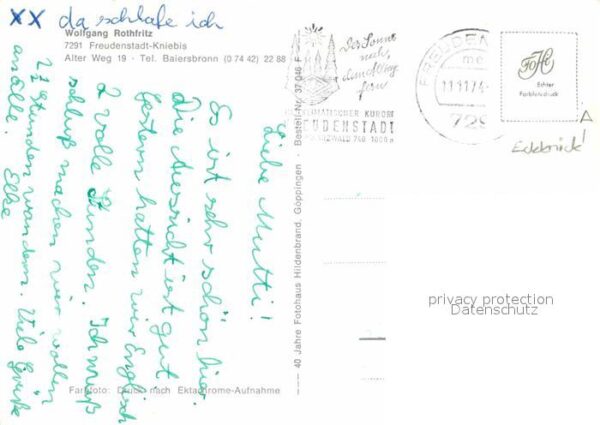 XX da schlafe ich
Wolfgang Rothfritz
7291 Freudenstadt-Kniebis
Alter Weg 19 · Tel. Baiersbronn (0 74 42) 22 88
Liebe Mutti!
Es ist sehr schön hier.
Die Aussicht ist gut
Gestern hatten wir Englisch
2 volle Stunden. Ich muß
schluß machen wir wollen
2½ Stunden wandern. Viele Grüße
an alle. Elke
Farbfoto: Druck nach Ektachrome-Aufnahme
40 Jahre Fotohaus Hildenbrand, Göppingen · Bestell-Nr. 37 046 F
Der Sonne
nah,
dem Alltag
fern
HEILKLIMATISCHER KURORT
FREUDENSTADT
SCHWARZWALD 740-1000 m
FREUDEN
11.11.74
729
FoHi
Echter
Farbfotodruck
A
privacy protection
Datenschutz